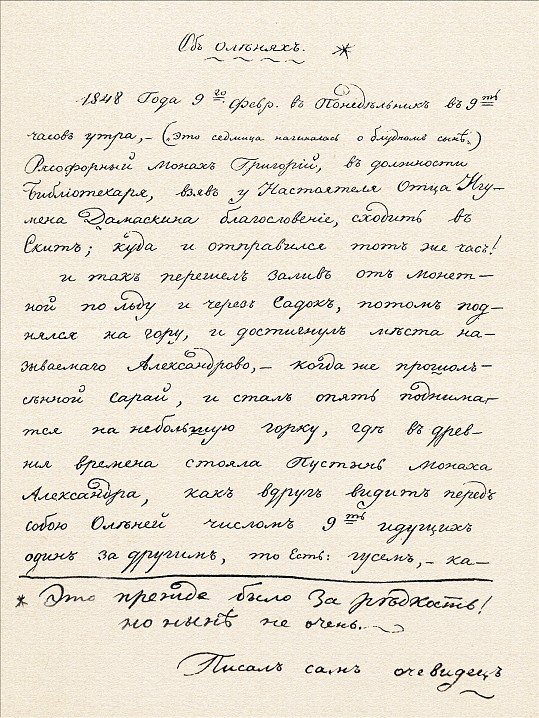 Объ олѣняхъ. *
1848 Года 9го Февр. въ Понедѣльникъ въ 9ть
часовъ утра, – („это седмица начиналась о блудномъ сынѣ„)
Рясофорный Монахъ Григорій, въ должности
Библіотекаря, взявъ у Настоятеля Отца Игу-
мена Дамаскина благословеніе, сходить въ
Скитъ; куда и отправился тотъ же часъ!
и такъ перешелъ заливъ отъ монет-
ной по льду и черезъ Садокъ, потомъ под-
нялся на гору, и достигнулъ мѣста на-
зываемаго Александрово, – когда же прошолъ-
сѣнной сарай, и сталъ опять поднимат-
тся на небольшую горку, гдѣ въ древ-
нія времена стояла Пустынь Монаха
Александра, какъ вдругъ видитъ передъ
собою Олѣней числомъ 9ть идущихъ
одинъ за другимъ, то Есть: гусемъ, – ка-
* Это прежде было За рѣдкость!
но нынѣ не очень.
Писалъ самъ очевидецъ